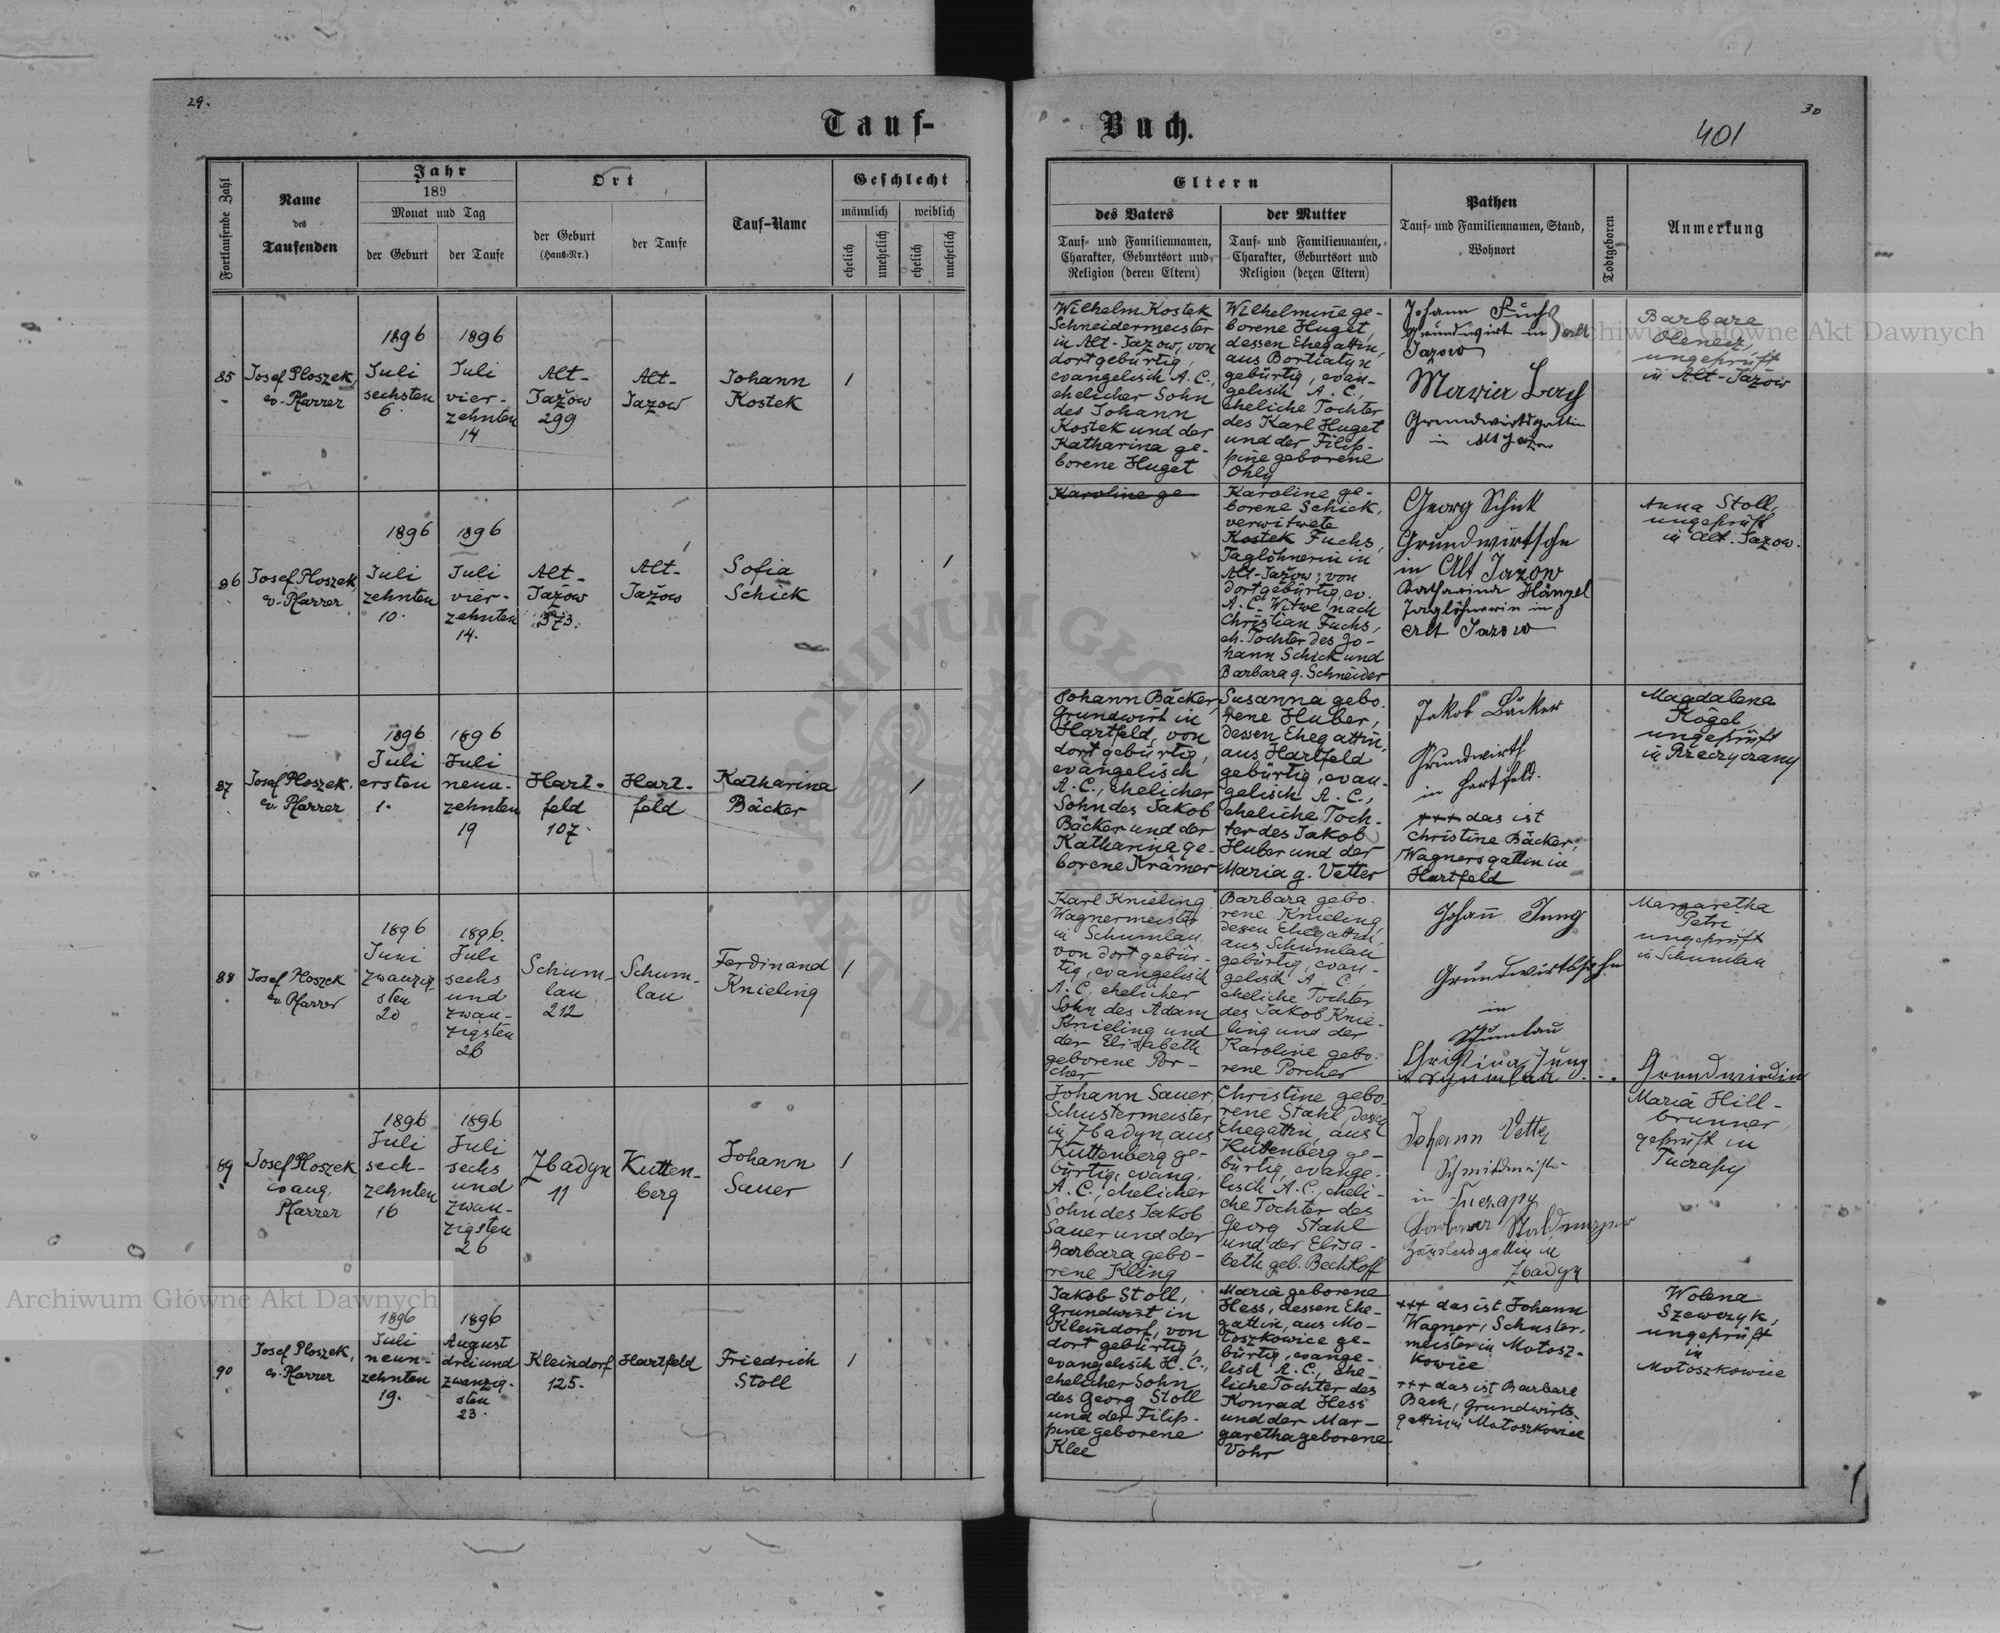 29.
Tauf-
Fortlaufende Zahl
Name
des
Taufenden
Jahr
189
Monat und Tag
der Geburt
der Taufe
Ort
der Geburt
(Haus-Nr.)
der Taufe
Tauf-Name
Geschlecht
männlich
weiblich
ehelich
unehelich
ehelich
unehelich
85
Josef Ploszek,
ev. Pfarrer
1896
Juli
sechsten
6.
1896
Juli
vier-
zehnten
14
Alt-
Jazow
299
Alt-
Jazow
Johann
Kostek
1
86
Josef Ploszek,
ev. Pfarrer
1896
Juli
zehnten
10.
1896
Juli
vier-
zehnten
14.
Alt-
Jazow
373.
Alt-
Jazow
Sofia
Schick
1
87
Josef Ploszek,
ev. Pfarrer
1896
Juli
ersten
1.
1896
Juli
neun-
zehnten
19
Hart-
feld
107.
Hart-
feld
Katharina
Bäcker
1
88
Josef Ploszek
ev. Pfarrer
1896
Juni
zwanzig-
sten
20
1896.
Juli
sechs
und
zwan-
zigsten
26
Schum-
lau
212
Schum-
lau
Ferdinand
Knieling
1
89
Josef Ploszek
evang.
Pfarrer
1896
Juli
sech-
zehnten
16
1896
Juli
sechs
und
zwan-
zigsten
26
Zbadyn
11
Kutten-
berg
Johann
Sauer
1
90
Josef Ploszek,
ev. Pfarrer
1896
Juli
neun-
zehnten
19.
1896
August
drei und
zwanzig-
sten
23.
Kleindorf
125.
Hartfeld
Friedrich
Stoll
1
30
Buch.
401
Eltern
des Vaters
Tauf- und Familiennamen,
Charakter, Geburtsort und
Religion (deren Eltern)
der Mutter
Tauf- und Familiennamen,
Charakter, Geburtsort und
Religion (deren Eltern)
Pathen
Tauf- und Familiennamen, Stand,
Wohnort
Todtgeboren
Anmerkung
Wilhelm Kostek
Schneidermeister
in Alt-Jazow, von
dort gebürtig,
evangelisch A. C.,
ehelicher Sohn
des Johann
Kostek und der
Katharina ge-
borene Huget
Wilhelmine ge-
borene Huget,
dessen Ehegattin,
aus Bortiatyn
gebürtig, evan-
gelisch A. C.,
eheliche Tochter
des Karl Huget
und der Filip-
pine geborene
Ohly
Johann Fuchs
Grundwirt in Alt
Jazow
Maria Lay
Grundwirtsgattin
in Alt Jazow
Barbara
ungeprüft
in Alt-Jazow
Karoline ge
Karoline ge-
borene Schick,
verwitwete
Kostek Fuchs,
Taglöhnerin in
Alt-Jazow, von
dort gebürtig, ev.
A. C. Witwe nach
Christian Fuchs,
eh. Tochter des Jo-
hann Schick und
Barbara g. Schneider
Georg Schick
Grundwirtsohn
in Alt Jazow
Katharina Hänzel
Taglöhnerin in
Alt Jazow
Anna Stoll,
ungeprüft
in Alt-Jazow.
Johann Bäcker,
Grundwirt in
Hartfeld, von
dort gebürtig,
evangelisch
A. C., ehelicher
Sohn des Jakob
Bäcker und der
Katharina ge-
borene Krämer
Susanna gebo-
rene Huber,
dessen Ehegattin,
aus Hartfeld
gebürtig, evan-
gelisch A. C.,
eheliche Toch-
ter des Jakob
Huber und der
Maria g. Vetter
Jakob Bäcker
Grundwirth
in Hartfeld.
+++ das ist
Christine Bäcker,
Wagnersgattin in
Hartfeld
Magdalena
Kögel,
ungeprüft
in Przeczyczany
Karl Knieling,
Wagnermeister
in Schumlau,
von dort gebür-
tig, evangelisch
A. C. ehelicher
Sohn des Adam
Knieling und
der Elisabeth
geborene Por-
cher
Barbara gebo-
rene Knieling,
dessen Ehegattin,
aus Schumlau
gebürtig, evan-
gelisch A. C.
eheliche Tochter
des Jakob Knie-
ling und der
Karoline gebo-
rene Porcher
Johann Jung
Grundwirtssohn
in
Schumlau
Christina Jung
in Schumlau
Margaretha
Petri
ungeprüft
in Schumlau
Grundwirdin
Johann Sauer,
Schustermeister
in Zbadyn, aus
Kuttenberg ge-
bürtig, evang.
A. C., ehelicher
Sohn des Jakob
Sauer und der
Barbara gebo-
rene Kling
Christine gebo-
rene Stahl, dessen
Ehegattin, aus
Kuttenberg ge-
bürtig, evange-
lisch A. C., eheli-
che Tochter des
Georg Stahl
und der Elisa-
beth geb. Bechtloff
Johann Vetter
Schmidmeister
in Tuczapy
Barbara
Häuslersgattin in
Zbadyn
Maria Hill-
brunner,
geprüft in
Tuczapy
Jakob Stoll,
Grundwirt in
Kleindorf, von
dort gebürtig,
evangelisch H. C.,
ehelicher Sohn
des Georg Stoll
und der Filip-
pine geborene
Klee
Maria geborene
Hess, dessen Ehe-
gattin, aus Mo-
toszkowice ge-
bürtig, evange-
lisch A. C., ehe-
liche Tochter des
Konrad Hess
und der Mar-
garetha geborene
Vohr
+++ das ist Johann
Wagner, Schuster-
meister in Motosz-
kowice
+++ das ist Barbara
Bach, Grundwirts-
gattin in Motoszkowice
Wolena
Szewczyk,
ungeprüft
in
Motoszkowice
Archiwum Główne Akt Dawnych
Archiwum Główne Akt Dawnych
ARCHIWUM GŁÓWNE AKT DAWNYCH